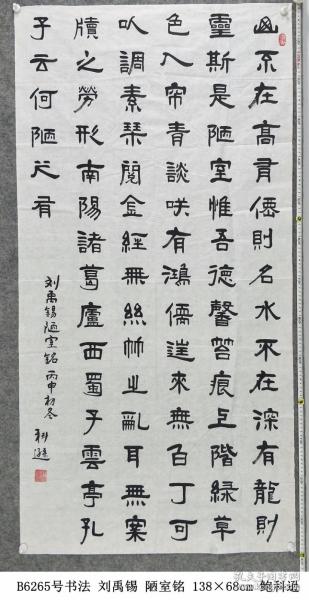 山不在高有僊則名水不在深有龍則
靈斯是陋室惟吾德馨苔痕上階綠草
色入帘青談咲有鴻儒往來無白丁可
以調素琴閱金經無絲竹之亂耳無案
牘之勞形南陽諸葛廬西蜀子雲亭孔
子云何陋之有
刘禹锡陋室铭丙申初冬
科遜
B6265号书法 刘禹锡 陋室铭 138×68cm 鲍科逊